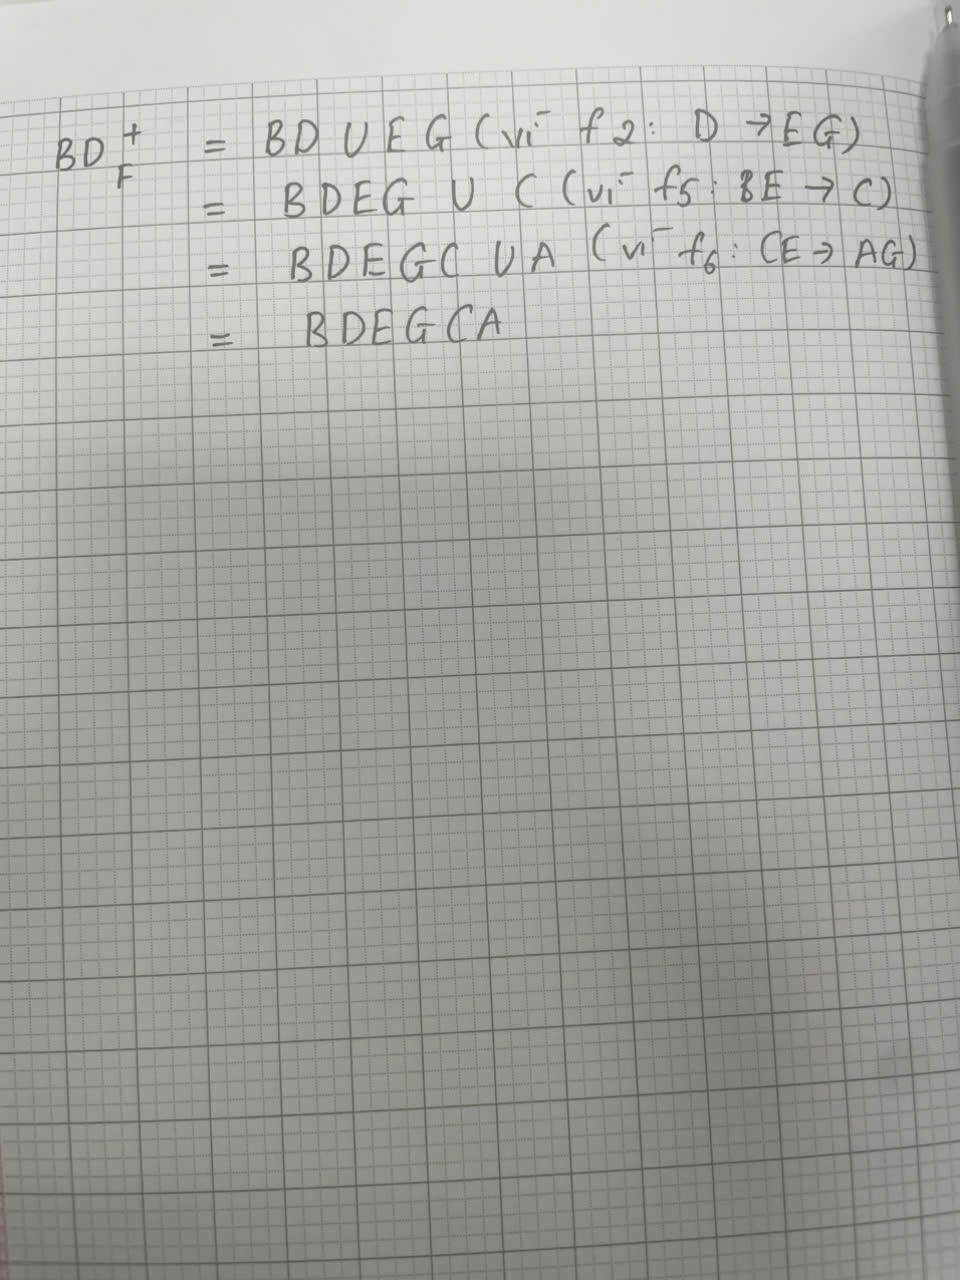 BD+F = BD U EG (vì f2: D → EG)
= BDEG U C (vì f5: BE → C)
= BDEGC U A (vì f6: CE → AG)
= BDEGCA